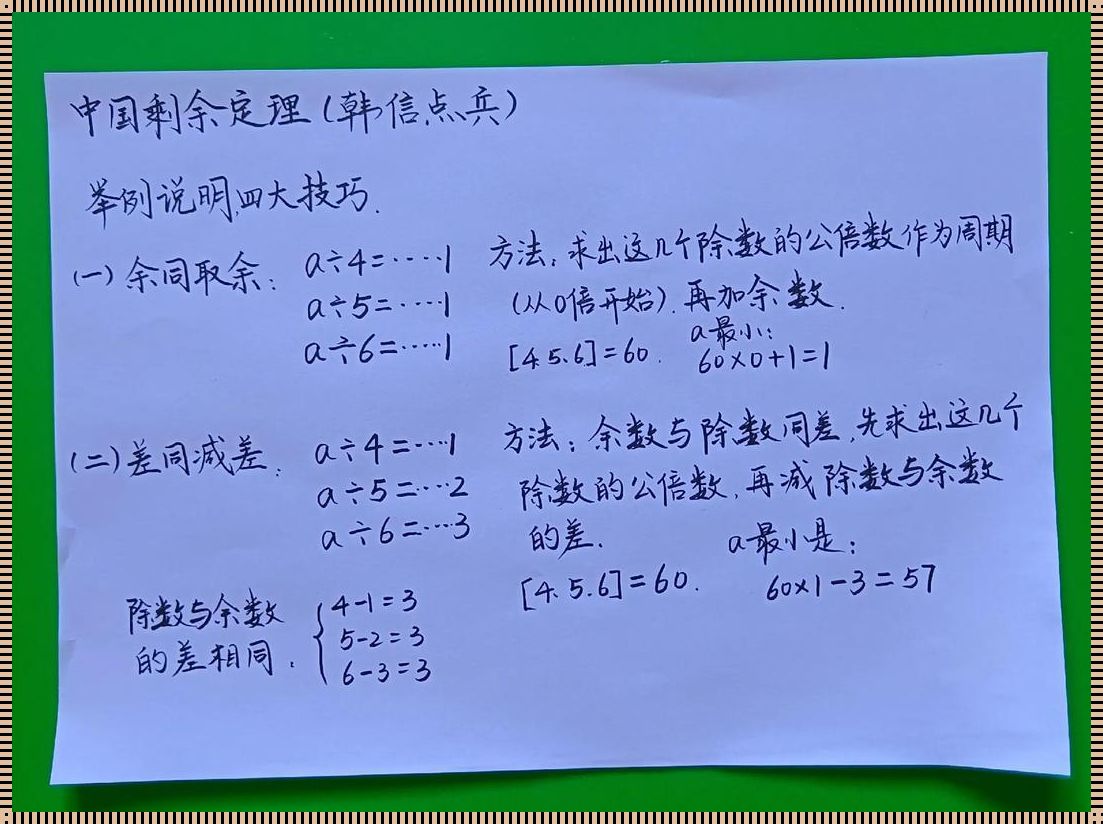 中国剩余定理(韩信点兵)
举例说明四大技巧.
(一)余同取余: a÷4=……1 方法:求出这几个除数的公倍数作为周期
a÷5=……1 (从0倍开始).再加余数.
a÷6=……1 [4.5.6]=60. a最小:
60×0+1=1
(二)差同减差: a÷4=…1 方法:余数与除数同差,先求出这几个
a÷5=…2 除数的公倍数,再减除数与余数
a÷6=…3 的差. a最小是:
[4.5.6]=60. 60×1-3=57
除数与余数 4-1=3
的差相同: 5-2=3
6-3=3